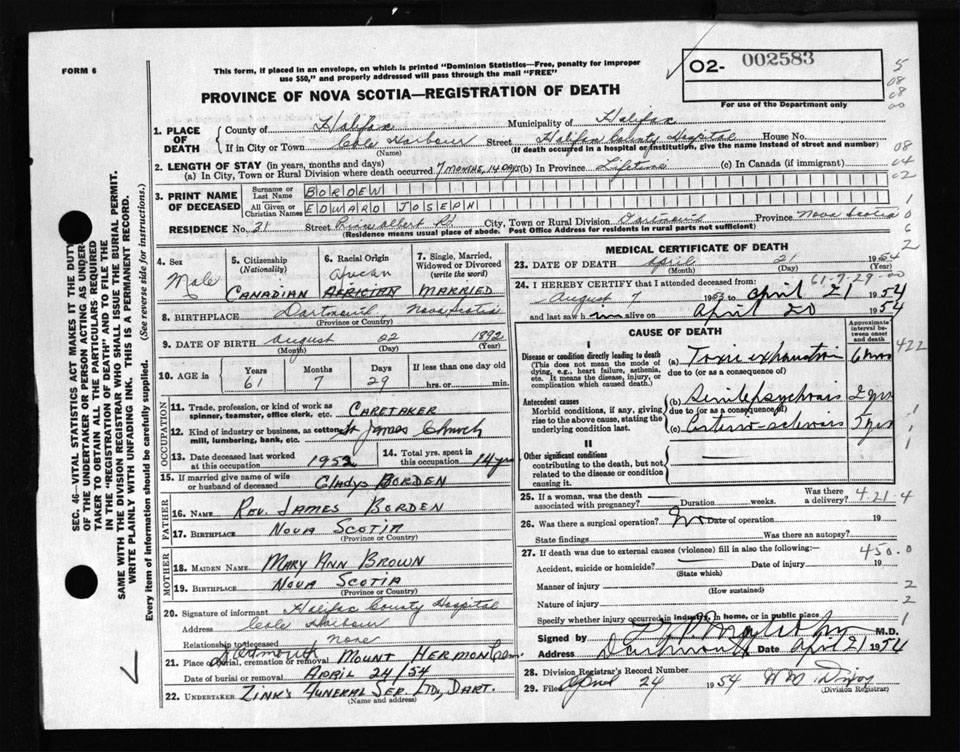 FORM 6
This form, if placed in an envelope, on which is printed "Dominion Statistics—Free, penalty for improper
use $50," and properly addressed will pass through the mail "FREE"
O2- 002583
For use of the Department only
PROVINCE OF NOVA SCOTIA—REGISTRATION OF DEATH
1. PLACE OF DEATH
County of Halifax Municipality of Halifax
If in City or Town Cole Harbour Street Halifax County Hospital House No.
(Name) (If death occurred in a hospital or institution, give the name instead of street and number)
2. LENGTH OF STAY (in years, months and days)
(a) In City, Town or Rural Division where death occurred 7 MONTHS, 14 DAYS (b) In Province Lifetime (c) In Canada (if immigrant)
3. PRINT NAME OF DECEASED
Surname or Last Name BORDEN
All Given or Christian Names EDWARD JOSEPH
RESIDENCE No. 21 Street Albert Rd. City, Town or Rural Division Dartmouth Province Nova Scotia
(Residence means usual place of abode. Post Office Address for residents in rural parts not sufficient)
4. Sex
Male
5. Citizenship (Nationality)
CANADIAN
6. Racial Origin
African
7. Single, Married, Widowed or Divorced (write the word)
MARRIED
8. BIRTHPLACE Dartmouth, Nova Scotia
(Province or Country)
9. DATE OF BIRTH August 22 1892
(Month) (Day) (Year)
10. AGE in Years Months Days If less than one day old
61 7 29 hrs. or min.
OCCUPATION
11. Trade, profession, or kind of work as spinner, teamster, office clerk, etc. CARETAKER
12. Kind of industry or business, as cotton mill, lumbering, bank, etc. St James Church
13. Date deceased last worked at this occupation 1952
14. Total yrs. spent in this occupation 14 yrs
15. If married give name of wife or husband of deceased Gladys BORDEN
FATHER
16. NAME REV. JAMES BORDEN
17. BIRTHPLACE NOVA SCOTIA
(Province or Country)
MOTHER
18. MAIDEN NAME MARY ANN BROWN
19. BIRTHPLACE NOVA SCOTIA
(Province or Country)
20. Signature of informant Halifax County Hospital
Address Cole Harbour
Relationship to deceased None
21. Place of burial, cremation or removal Dartmouth MOUNT HERMON Cem.
Date of burial or removal APRIL 24/54
22. UNDERTAKER ZINK'S FUNERAL SER. LTD, DART.
(Name and address)
MEDICAL CERTIFICATE OF DEATH
23. DATE OF DEATH April 21 1954
(Month) (Day) (Year)
61-7-29-00
24. I HEREBY CERTIFY that I attended deceased from:
August 7 1953 to April 21 1954
and last saw him alive on April 20 1954
CAUSE OF DEATH
Approximate interval between onset and death
Disease or condition directly leading to death
(This does not mean the mode of dying, e.g., heart failure, asthenia, etc. It means the disease, injury, or complication which caused death.)
(a) Toxic exhaustion
due to (or as a consequence of)
422
Antecedent causes
Morbid conditions, if any, giving rise to the above cause, stating the underlying condition last.
(b) Senile psychosis 2 yrs
due to (or as a consequence of)
(c)
II
Other significant conditions
contributing to the death, but not related to the disease or condition causing it.
25. If a woman, was the death associated with pregnancy? Duration weeks. Was there a delivery?
4-21-4
26. Was there a surgical operation? No Date of operation 19
State findings Was there an autopsy?
27. If death was due to external causes (violence) fill in also the following:—
450.0
Accident, suicide or homicide? Date of injury 19
(State which)
Manner of injury
(How sustained)
Nature of injury
Specify whether injury occurred in industry, in home, or in public place
Signed by M.D.
Address Dartmouth Date April 21 1954
28. Division Registrar's Record Number
29. Filed April 24 1954
(Division Registrar)
SEC. 46—VITAL STATISTICS ACT MAKES IT THE DUTY
OF THE UNDERTAKER OR PERSON ACTING AS UNDER-
TAKER TO OBTAIN ALL THE PARTICULARS REQUIRED
IN THE "REGISTRATION OF DEATH" AND TO FILE THE
SAME WITH THE DIVISION REGISTRAR WHO SHALL ISSUE THE BURIAL PERMIT.
WRITE PLAINLY WITH UNFADING INK. THIS IS A PERMANENT RECORD.
Every item of information should be carefully supplied. (See reverse side for instructions.)